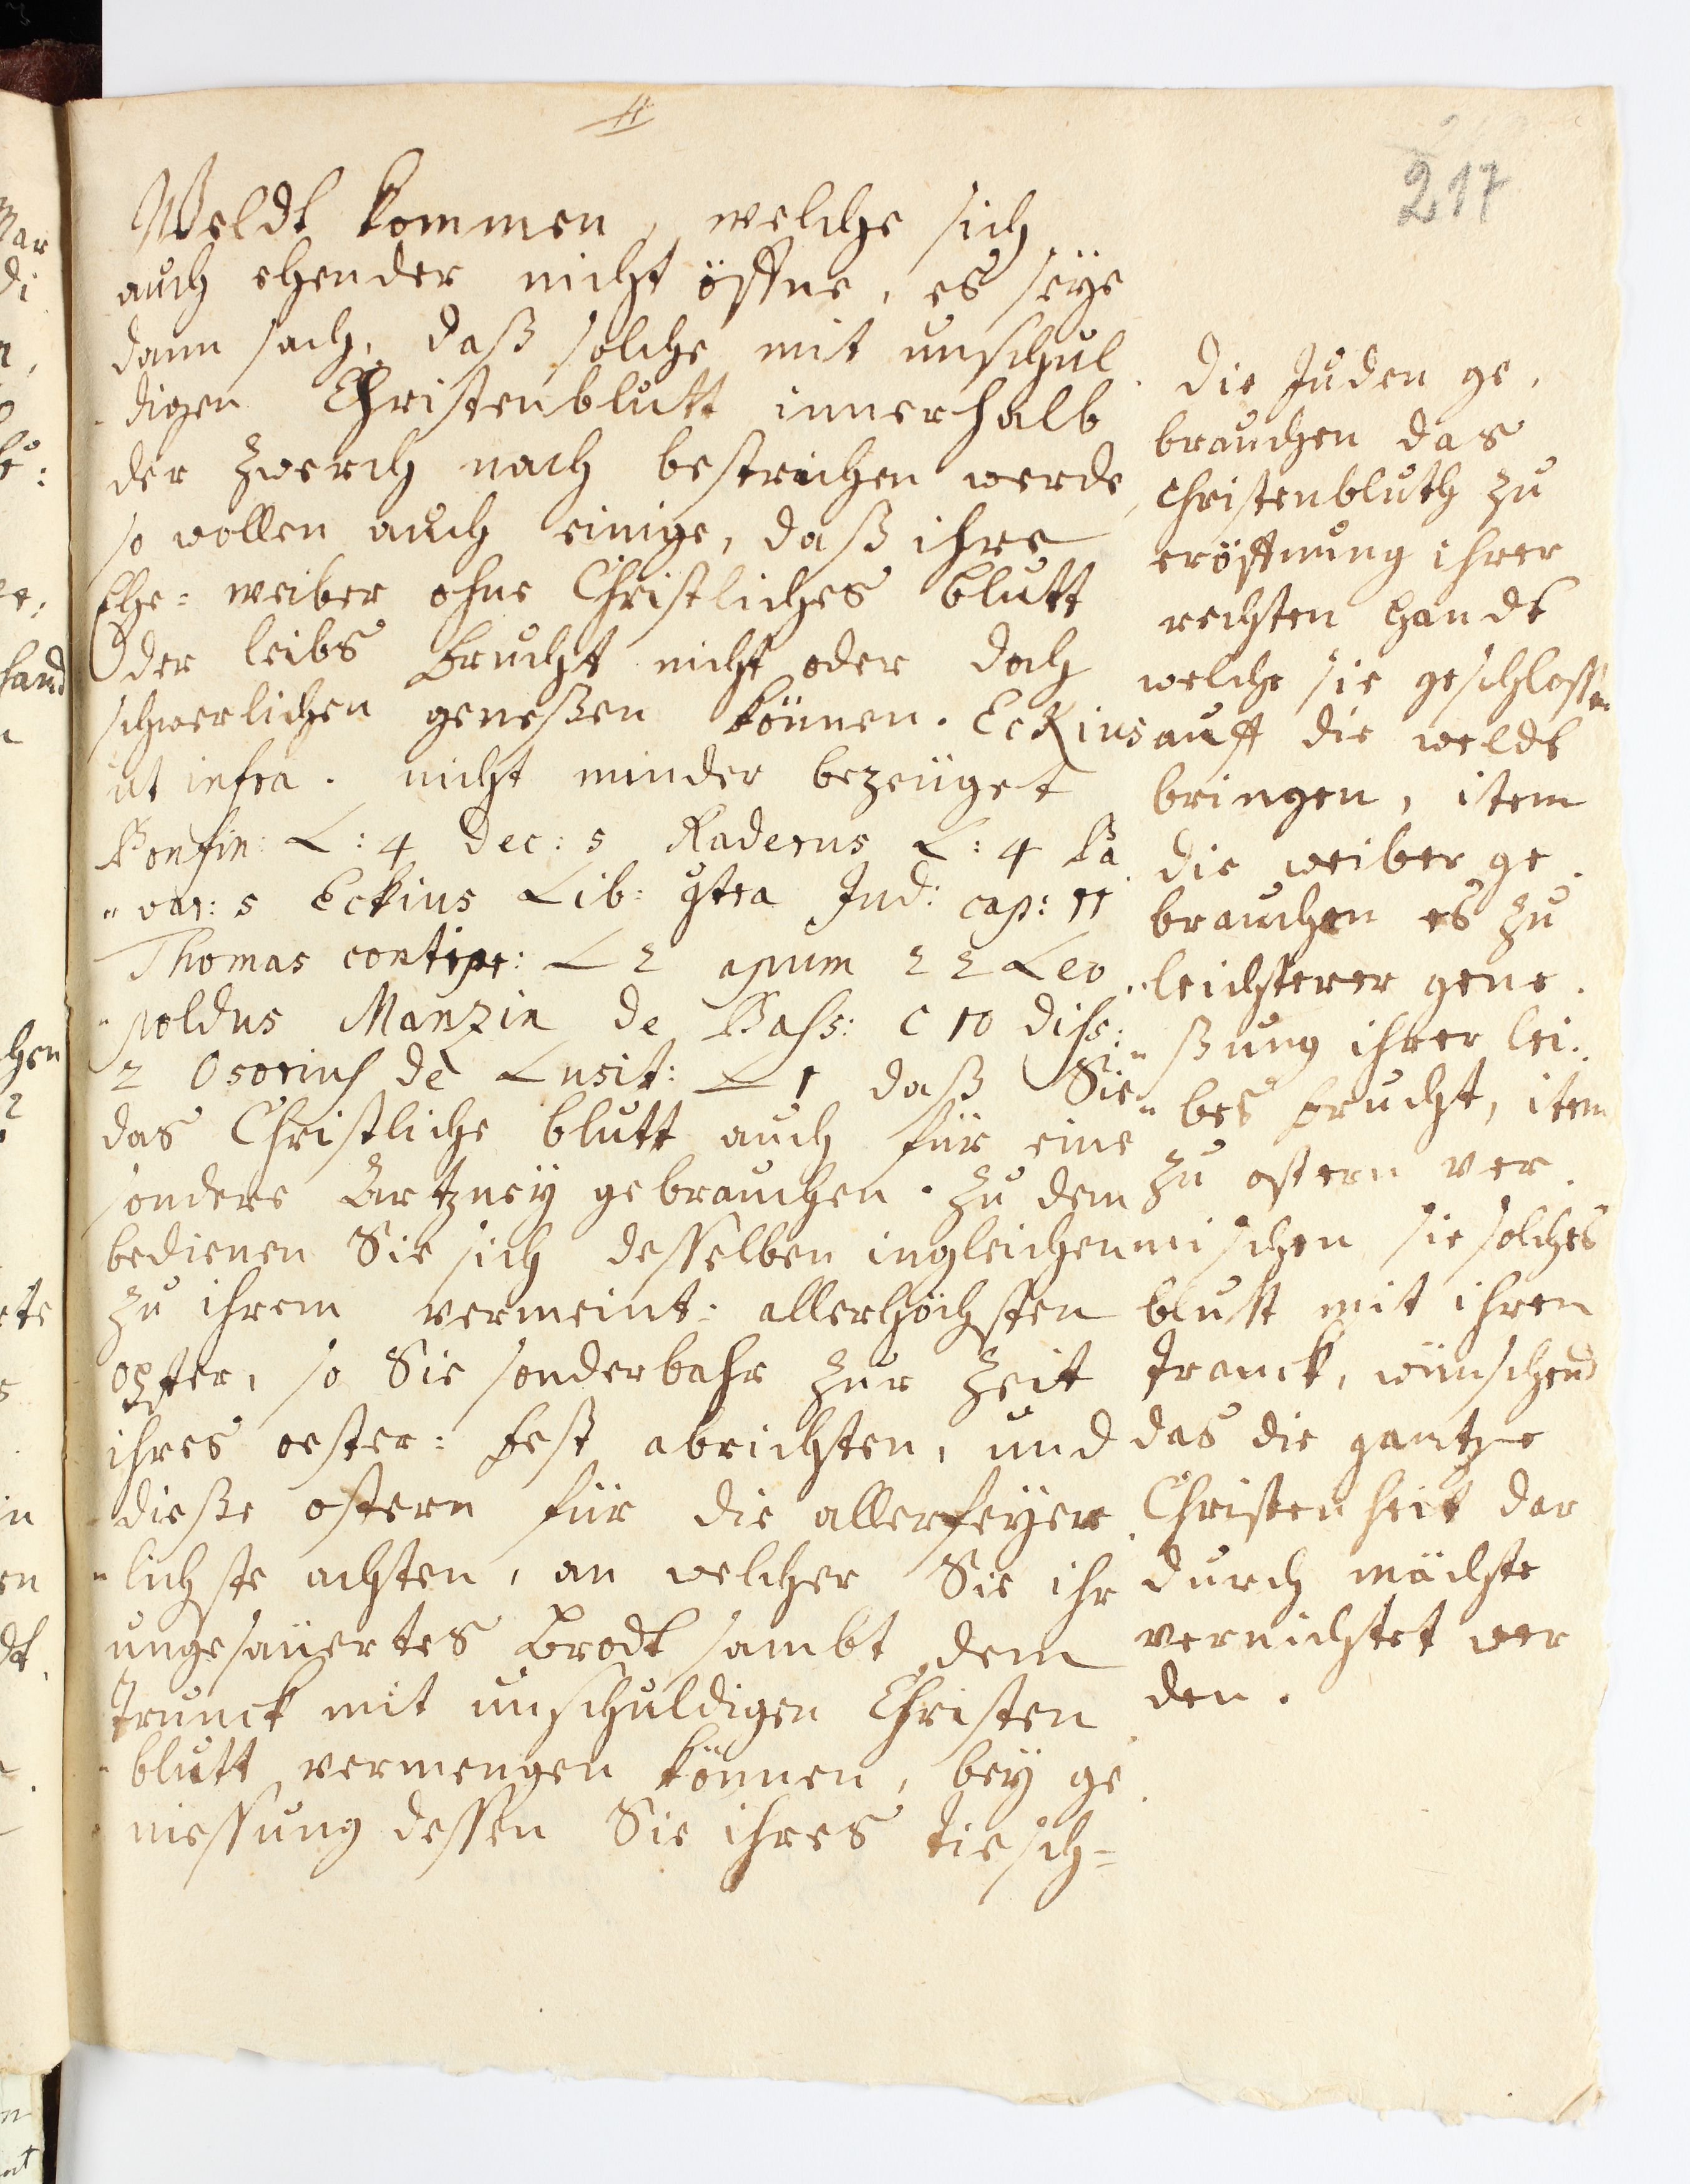 11
217
Weldt kommen, welche sich
auch ehender nicht öffne, es seye
dann sach, daß solche mit unschul
digen Christenblutt innerhalb
der zwerch nach bestrichen werde,
so wollen auch einige, daß ihre
Ehe= weiber ohne Christliches blutt
der leibs Frucht nicht oder doch
schwerlichen geneßen können. Eckius
ut infra. nicht minder bezeüget
Bonfin: L: 4 Dec: 5 Raderus L: 4 Ba
"var: 5 Eckius Lib: gtra Jud: cap: 11
Thomas contipr: L 2 apum 22 Leo
"poldus Manzin de Pass: C 10 diss:
2 Osorius de Lusit: L 1 daß Sie
das Christliche blutt auch für eine
sondere Artzney gebrauchen. Zu dem
bedienen Sie sich desselben ingleichen
zu ihrem vermeint: allerhöchsten
opfer, so Sie sonderbahr zur Zeit
ihres oester= Fest abrichten, und
dieße ostern für die allerfeyer
"lichste achten, an welcher Sie ihr
ungesaüertes Brodt sambt dem
Trunck mit unschuldigen Christen
"blutt vermengen können, bey ge
niessung dessen Sie ihres tisch=
die Juden ge
brauchen das
Christenbluth zu
eröffnung ihrer
rechten handt
welche sie geschlossen
auff die weldt
bringen, item
die weiber ge
brauchen es zu
leichterer gene
"ßung ihrer lei
"bes Frucht, item
zu ostern ver
mischen sie solches
blutt mit ihren
tranck, wünschend
das die gantze
Christenheit dar
durch möchte
vernichtet wer
den.